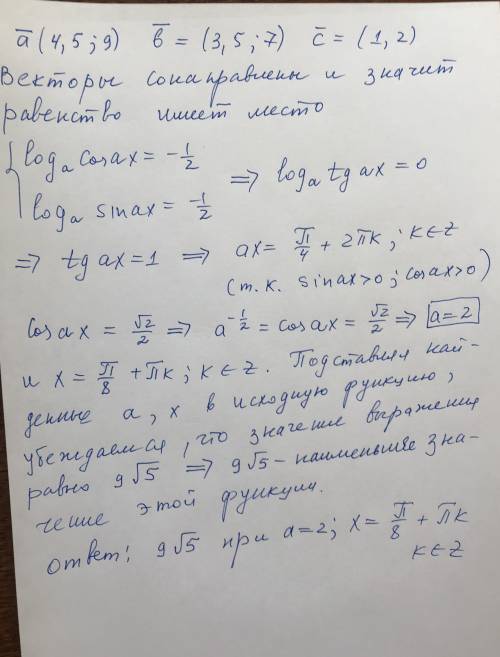 a̅ (4,5; 9)   b̅ = (3,5; 7)   c̅ = (1, 2)
Векторы сонаправлены и значит
равенство имеет место
{ logₐ cos ax = -1/2
logₐ sin ax = -1/2   ⇒ logₐ tg ax = 0
⇒ tg ax = 1 ⇒ ax = π/4 + 2πk; k∈Z
(т.к. sin ax>0; cos ax>0)
cos ax = √2/2 ⇒ a^(-1/2) = cos ax = √2/2 ⇒ a=2
и x = π/8 + πk; k∈Z. Подставляя най-
денные a, x в исходную функцию,
убеждаемся, что значение выражения
равно 9√5 ⇒ 9√5 - наименьшее зна-
чение этой функции.
Ответ: 9√5 при a=2; x = π/8 + πk
k∈Z